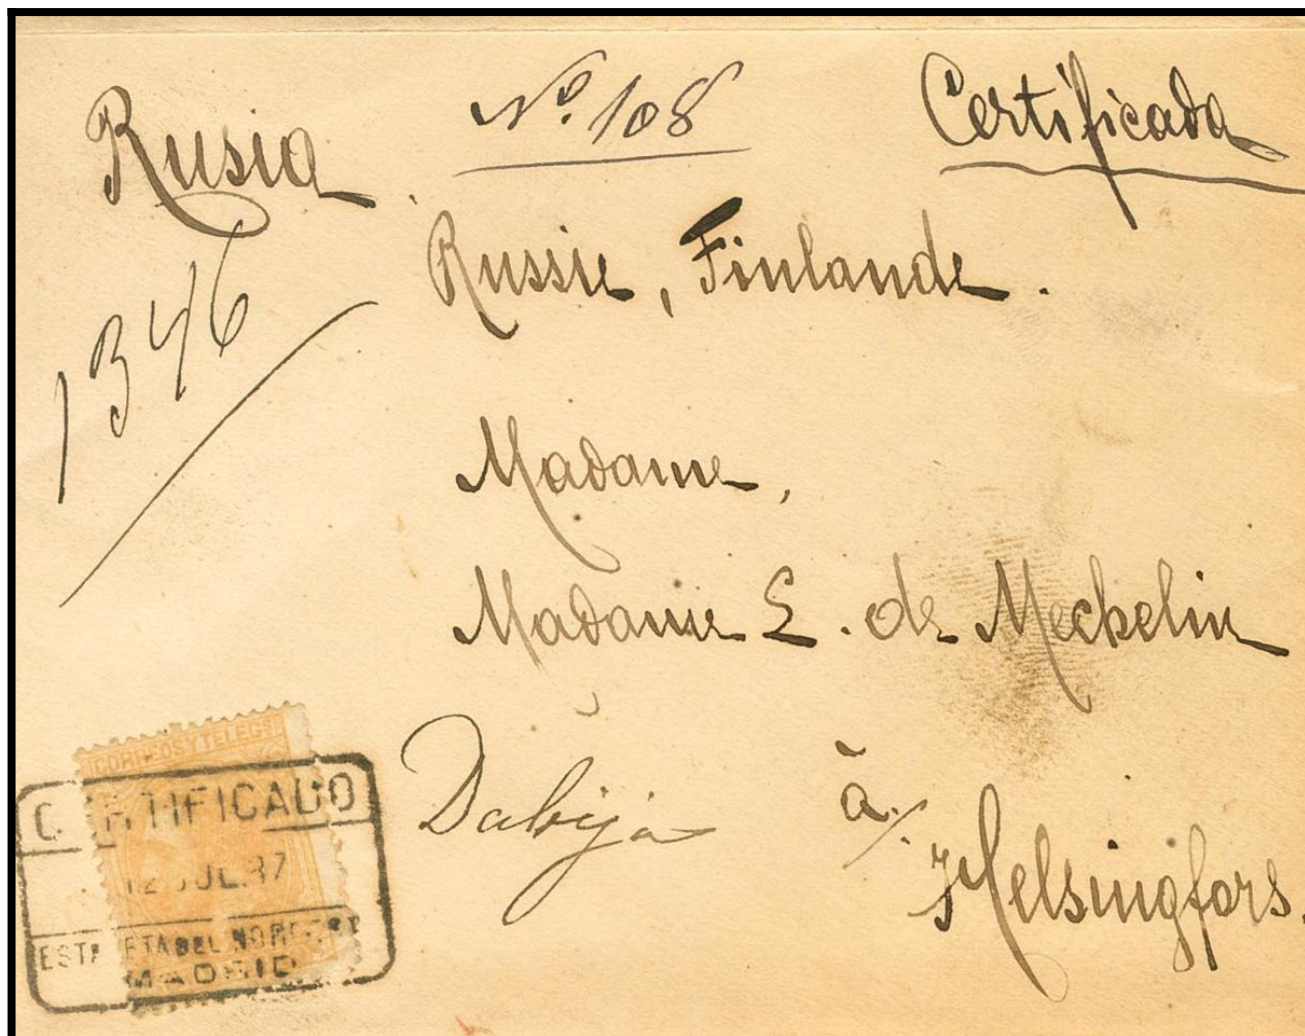 Rusia
Nº. 108
Certificada
Russie, Finlande.
1346
Madame,
Madame E. de Meckelin
Dabija
à
Helsingfors.
CORREOS Y TELEGS
CERTIFICADO
12 JUL. 87
ESTAFETA DEL NOROESTE
MADRID